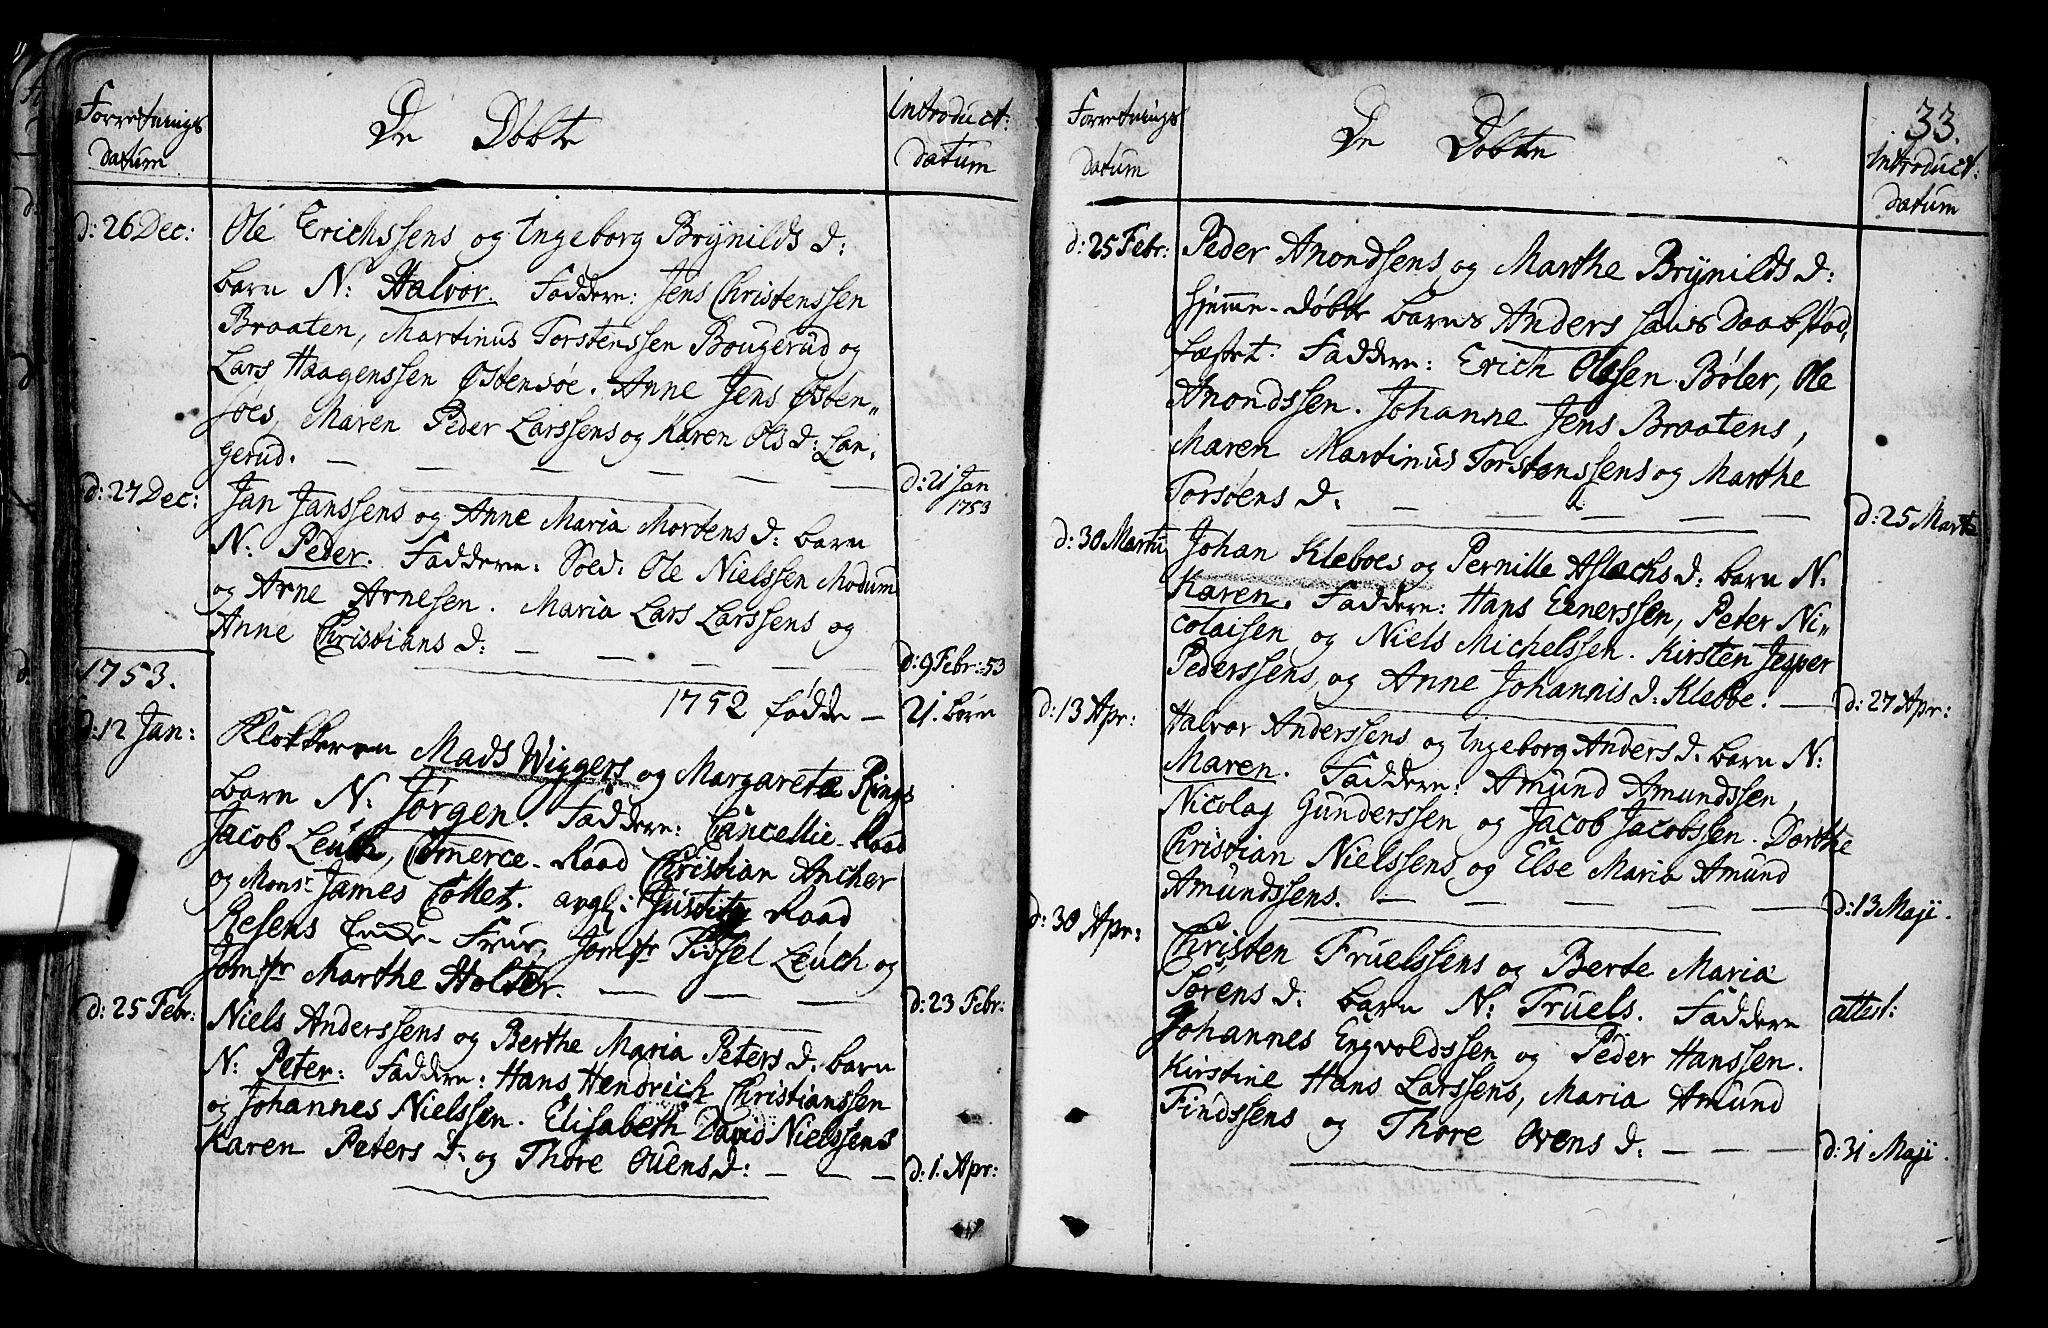 Forretnings
datum
De Döbte
introduct:
datum
d: 26 Dec:
Ole Erichssens og Ingeborg Brynilds d:
barn N: Halvor. Faddere: Jens Christenssen
Braaten, Martinus Torstenssen Bougerud og
Lars Haagenssen Østensöe. Anne Jens Østen„
söes, Maren Peder Larssens og Karen Ols d: Lan„
gerud.
d: 21 Jan
1753
d: 27 Dec:
Jan Janssens og Anne Maria Mortens d: barn
N: Peder. Faddere: Soed: Ole Nielssen Modum
og Arne Arnesen. Maria Lars Larssens og
Anne Christians d:
d: 9 Febr: 53
1753.
1752 födde – 21. börn
d: 12 Jan:
Klokkeren Mads Wiggers og Margareta Rings
barn N: Jörgen. Faddere: Cancellie-Raad
Jacob Leuch, Comerce-Raad Christian Ancher
og Monsr James Collet. avgl: Justitz Raad
Resens Encke-Frue, Jomfr Sissel Leuch og
Jomfr Marthe Holter.
d: 23 Febr:
d: 25 Febr:
Niels Anderssens og Berthe Maria Peters d: barn
N: Peter: Faddere: Hans Hendrich Christianssen
og Johannes Nielssen. Elisabeth David Nielssens
Karen Peters d: og Thore Ouens d:
d: 1. Apr:
33.
Forretnings
datum
De Döbte
Introduct:
datum
d: 25 Febr:
Peder Anondsens og Marthe Brynilds d:
hjemme-döbte barns Anders hans Daab stad„
fæstet. Faddere: Erich Olssen Böler, Ole
Anondssen. Johanne Jens Braatens,
Maren Martinus Torstenssens og Marthe
Torsöens d:
d: 25 Martii
d: 30 Martii
Johan Kleboes og Pernille Aslachs d: barn N:
Karen. Faddere: Hans Einerssen, Peter Ni„
colaisen og Niels Michelssen. Kirsten Jesper
Pederssens, og Anne Johannis d: Klebbe.
d: 27 Apr:
d: 13 Apr:
Halvor Anderssens og Ingeborg Anders d: barn N:
Maren. Faddere: Amund Amundssen,
Nicolaj Gunderssen og Jacob Jacobssen. Dorthe
Christian Nielssens, og Else Maria Amund
Amundssens.
d: 13 Maji.
d: 30 Apr:
Christen Truelssens og Berte Maria
Sörens d: barn N: Truels. Faddere
Johannes Engvoldssen og Peder Hanssen.
Kirstine Hans Larssens, Maria Amund
Findssens og Thore Ovens d:
attest:
d: 31 Maji.